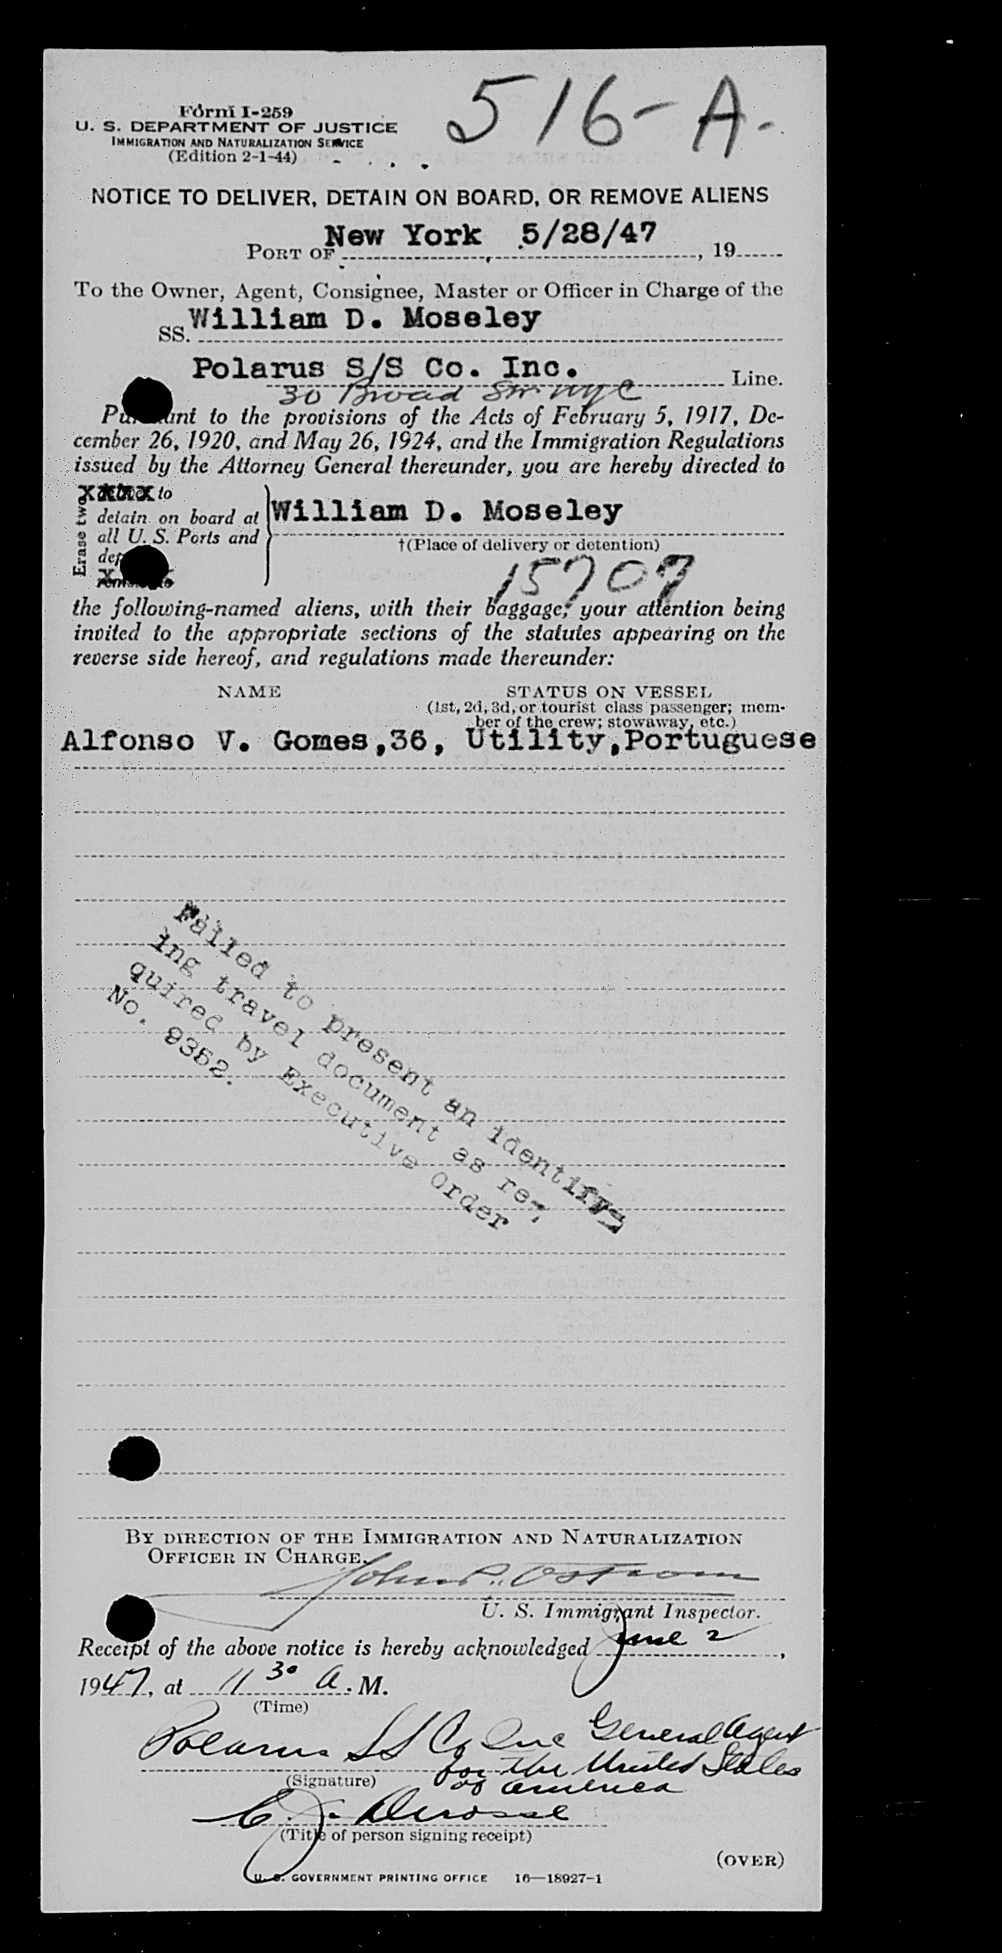 516-A.
Form I-259
U. S. DEPARTMENT OF JUSTICE
IMMIGRATION AND NATURALIZATION SERVICE
(Edition 2-1-44)
NOTICE TO DELIVER, DETAIN ON BOARD, OR REMOVE ALIENS
PORT OF New York 5/28/47, 19
To the Owner, Agent, Consignee, Master or Officer in Charge of the
SS. William D. Moseley
Polarus S/S Co. Inc. Line.
30 Broad St. NYC
Pursuant to the provisions of the Acts of February 5, 1917, De-
cember 26, 1920, and May 26, 1924, and the Immigration Regulations
issued by the Attorney General thereunder, you are hereby directed to
Erase two
xxxx to
detain on board at
all U. S. Ports and
William D. Moseley
†(Place of delivery or detention)
15707
the following-named aliens, with their baggage, your attention being
invited to the appropriate sections of the statutes appearing on the
reverse side hereof, and regulations made thereunder:
NAME STATUS ON VESSEL
(1st, 2d, 3d, or tourist class passenger; mem-
ber of the crew; stowaway, etc.)
Alfonso V. Gomes,36, Utility,Portuguese
Failed to present an identify-
ing travel document as re-
quired by Executive Order
No. 9352.
BY DIRECTION OF THE IMMIGRATION AND NATURALIZATION
OFFICER IN CHARGE.
John P. Ostrom
U. S. Immigrant Inspector.
Receipt of the above notice is hereby acknowledged June 2,
1947, at 11 30 A. M.
(Time)
Polarus SS Co Inc General Agent
for the United States
of America
(Signature)
C. J. Derosse
(Title of person signing receipt)
(OVER)
U. S. GOVERNMENT PRINTING OFFICE 16—18927-1